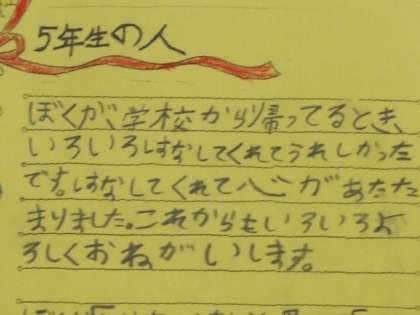 5年生の人
ぼくが、学校から帰ってるとき、
いろいろはなしてくれてうれしかった
です。はなしてくれて心があたた
まりました。これからもいろいろよ
ろしくおねがいします。